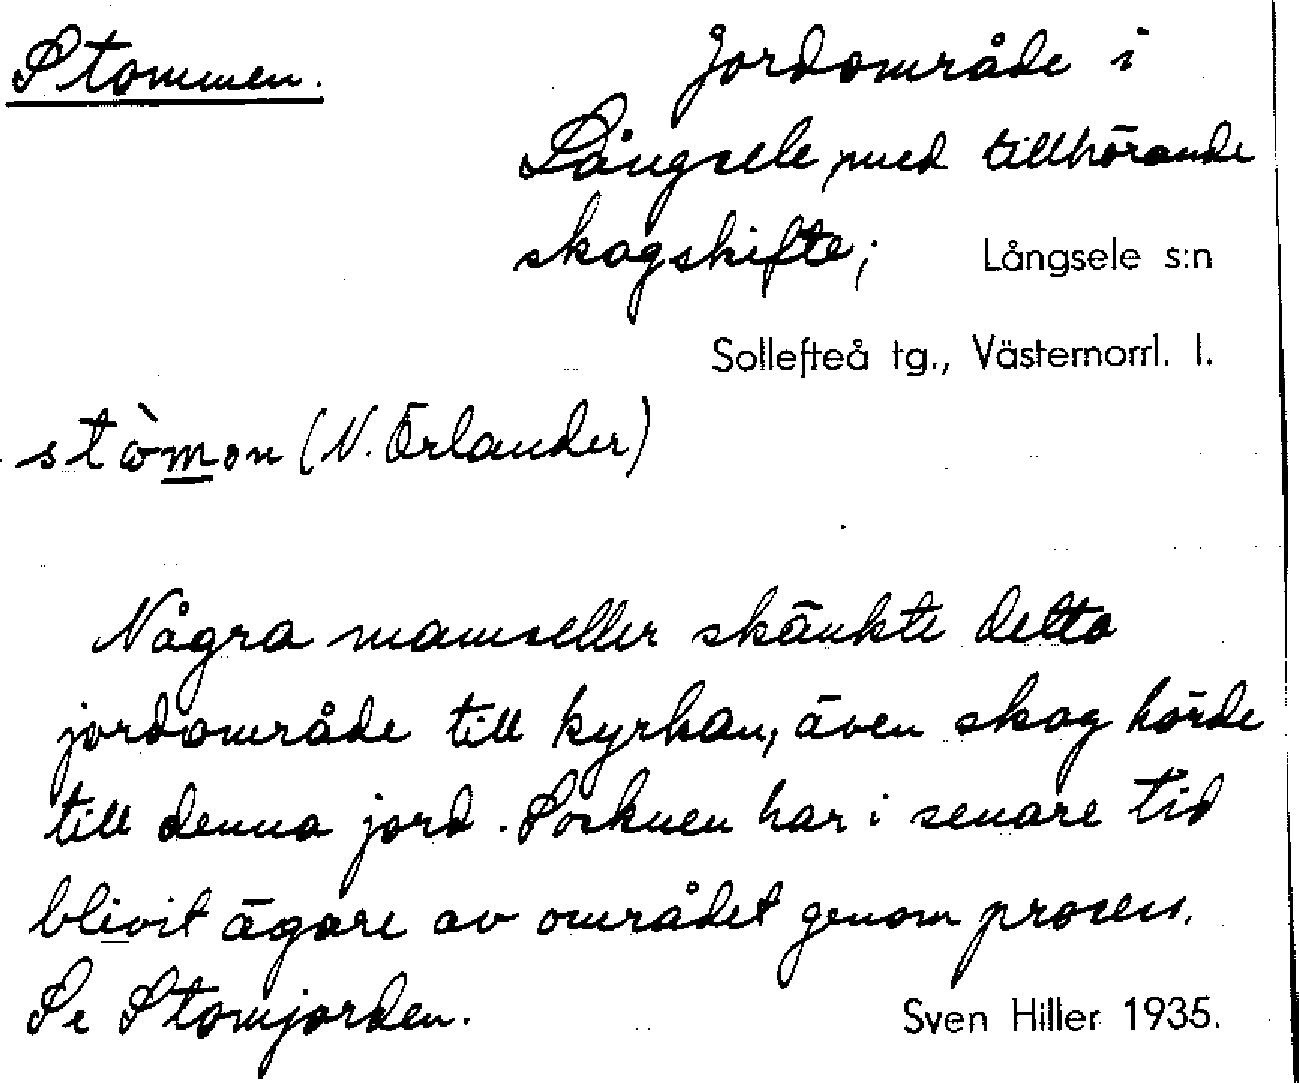 Stommen.
Jordområde i
Långsele, med tillhörande
skogskifte; Långsele s:n
Sollefteå tg., Västernorrl. l.
stòmon (N. Örlander)
Några mamseller skänkte detta
jordområde till kyrkan, även skog hörde
till denna jord. Socknen har i senare tid
blivit ägare av området genom process.
Se Stomjorden.
Sven Hiller 1935.